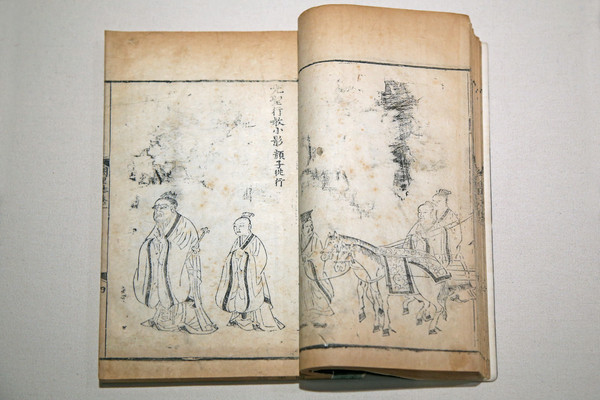 先聖行教小影 顏子從行